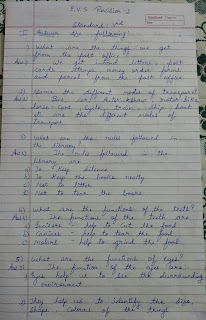 E.V.S Revision - 2
Standard: 3rd
I Answer the following:
1) What are the things we get
from the post office?
Ans:) We get inland letters, post
cards, stamps, money order, forms
and parcel from the post office.
2) Name the different modes of transport.
Ans:) Bus, car, Auto-rickshaw, motor bike,
horse-cart, cycle, train, ship, boat
etc are the different modes of
transport.
3) What are the rules followed in
the library?
Ans:) The rules followed in the
library are
a) To keep silence
b) To keep the books neatly
c) Not to litter
d) Not to tear the books
4) What are the functions of the teeth?
Ans:) The functions of the teeth are
a) incisors - help to cut the food
b) Canines - help to tear the food
c) molars - help to grind the food
5) What are the functions of eyes?
Ans:) The function of the eyes are
1) Eyes help us to see the surrounding
environment
2) They help us to identify the size,
shape, colours of the things